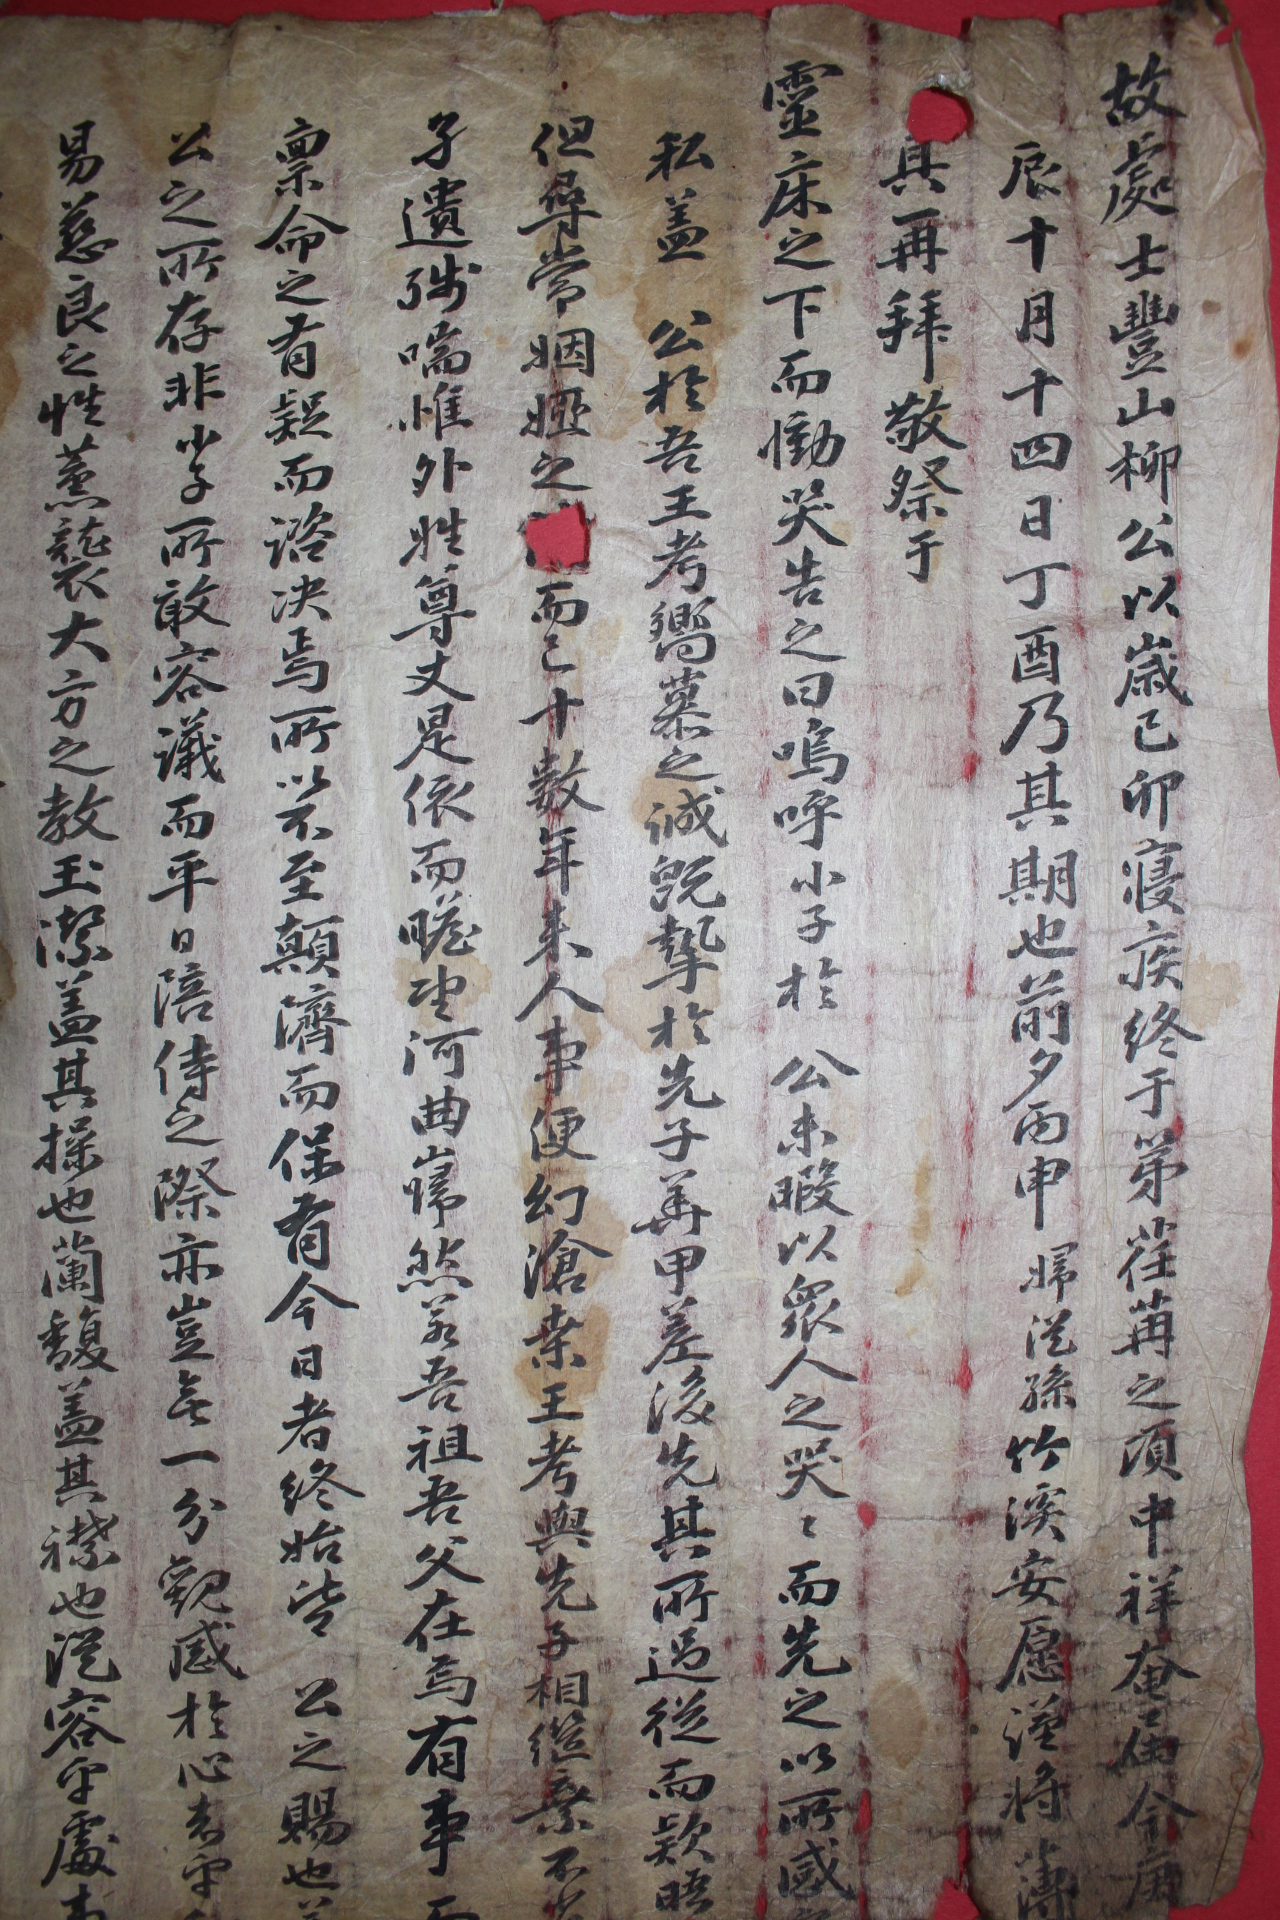 故處士豐山柳公以歲己卯寢疾終于第荏苒之須中祥奄届今庚
辰十月十四日丁酉乃其期也前夕丙申婦從孫竹溪安愿謹將薄
具再拜敬祭于
靈床之下而慟哭告之曰嗚呼小子於 公未暇以衆人之哭〻而先之以所感
私盖 公於吾王考嚮慕之誠旣摯於先子苒甲差後先其所過從而欵晤
但尋常姻婭之 而已十數年来人事便幻滄桒王考與先子相継棄不
孑遺殘喘惟外姓尊丈是依而瞻望河曲巋然若吾祖吾父在焉有事而
禀命之有疑而諮决焉所以不至顛隮而保有今日者終始皆 公之賜也
公之所存非小子所敢容議而平日陪侍之際亦豈無一分觀感於心者乎
易慈良之性薰襲大方之教玉潔盖其操也蘭馥盖其襟也從容乎處